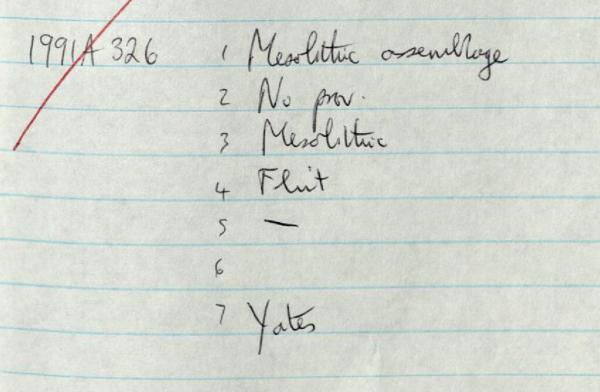 1991A 326 1 Mesolithic assemblage
2 No prov.
3 Mesolithic
4 Flint
5 —
6
7 Yates